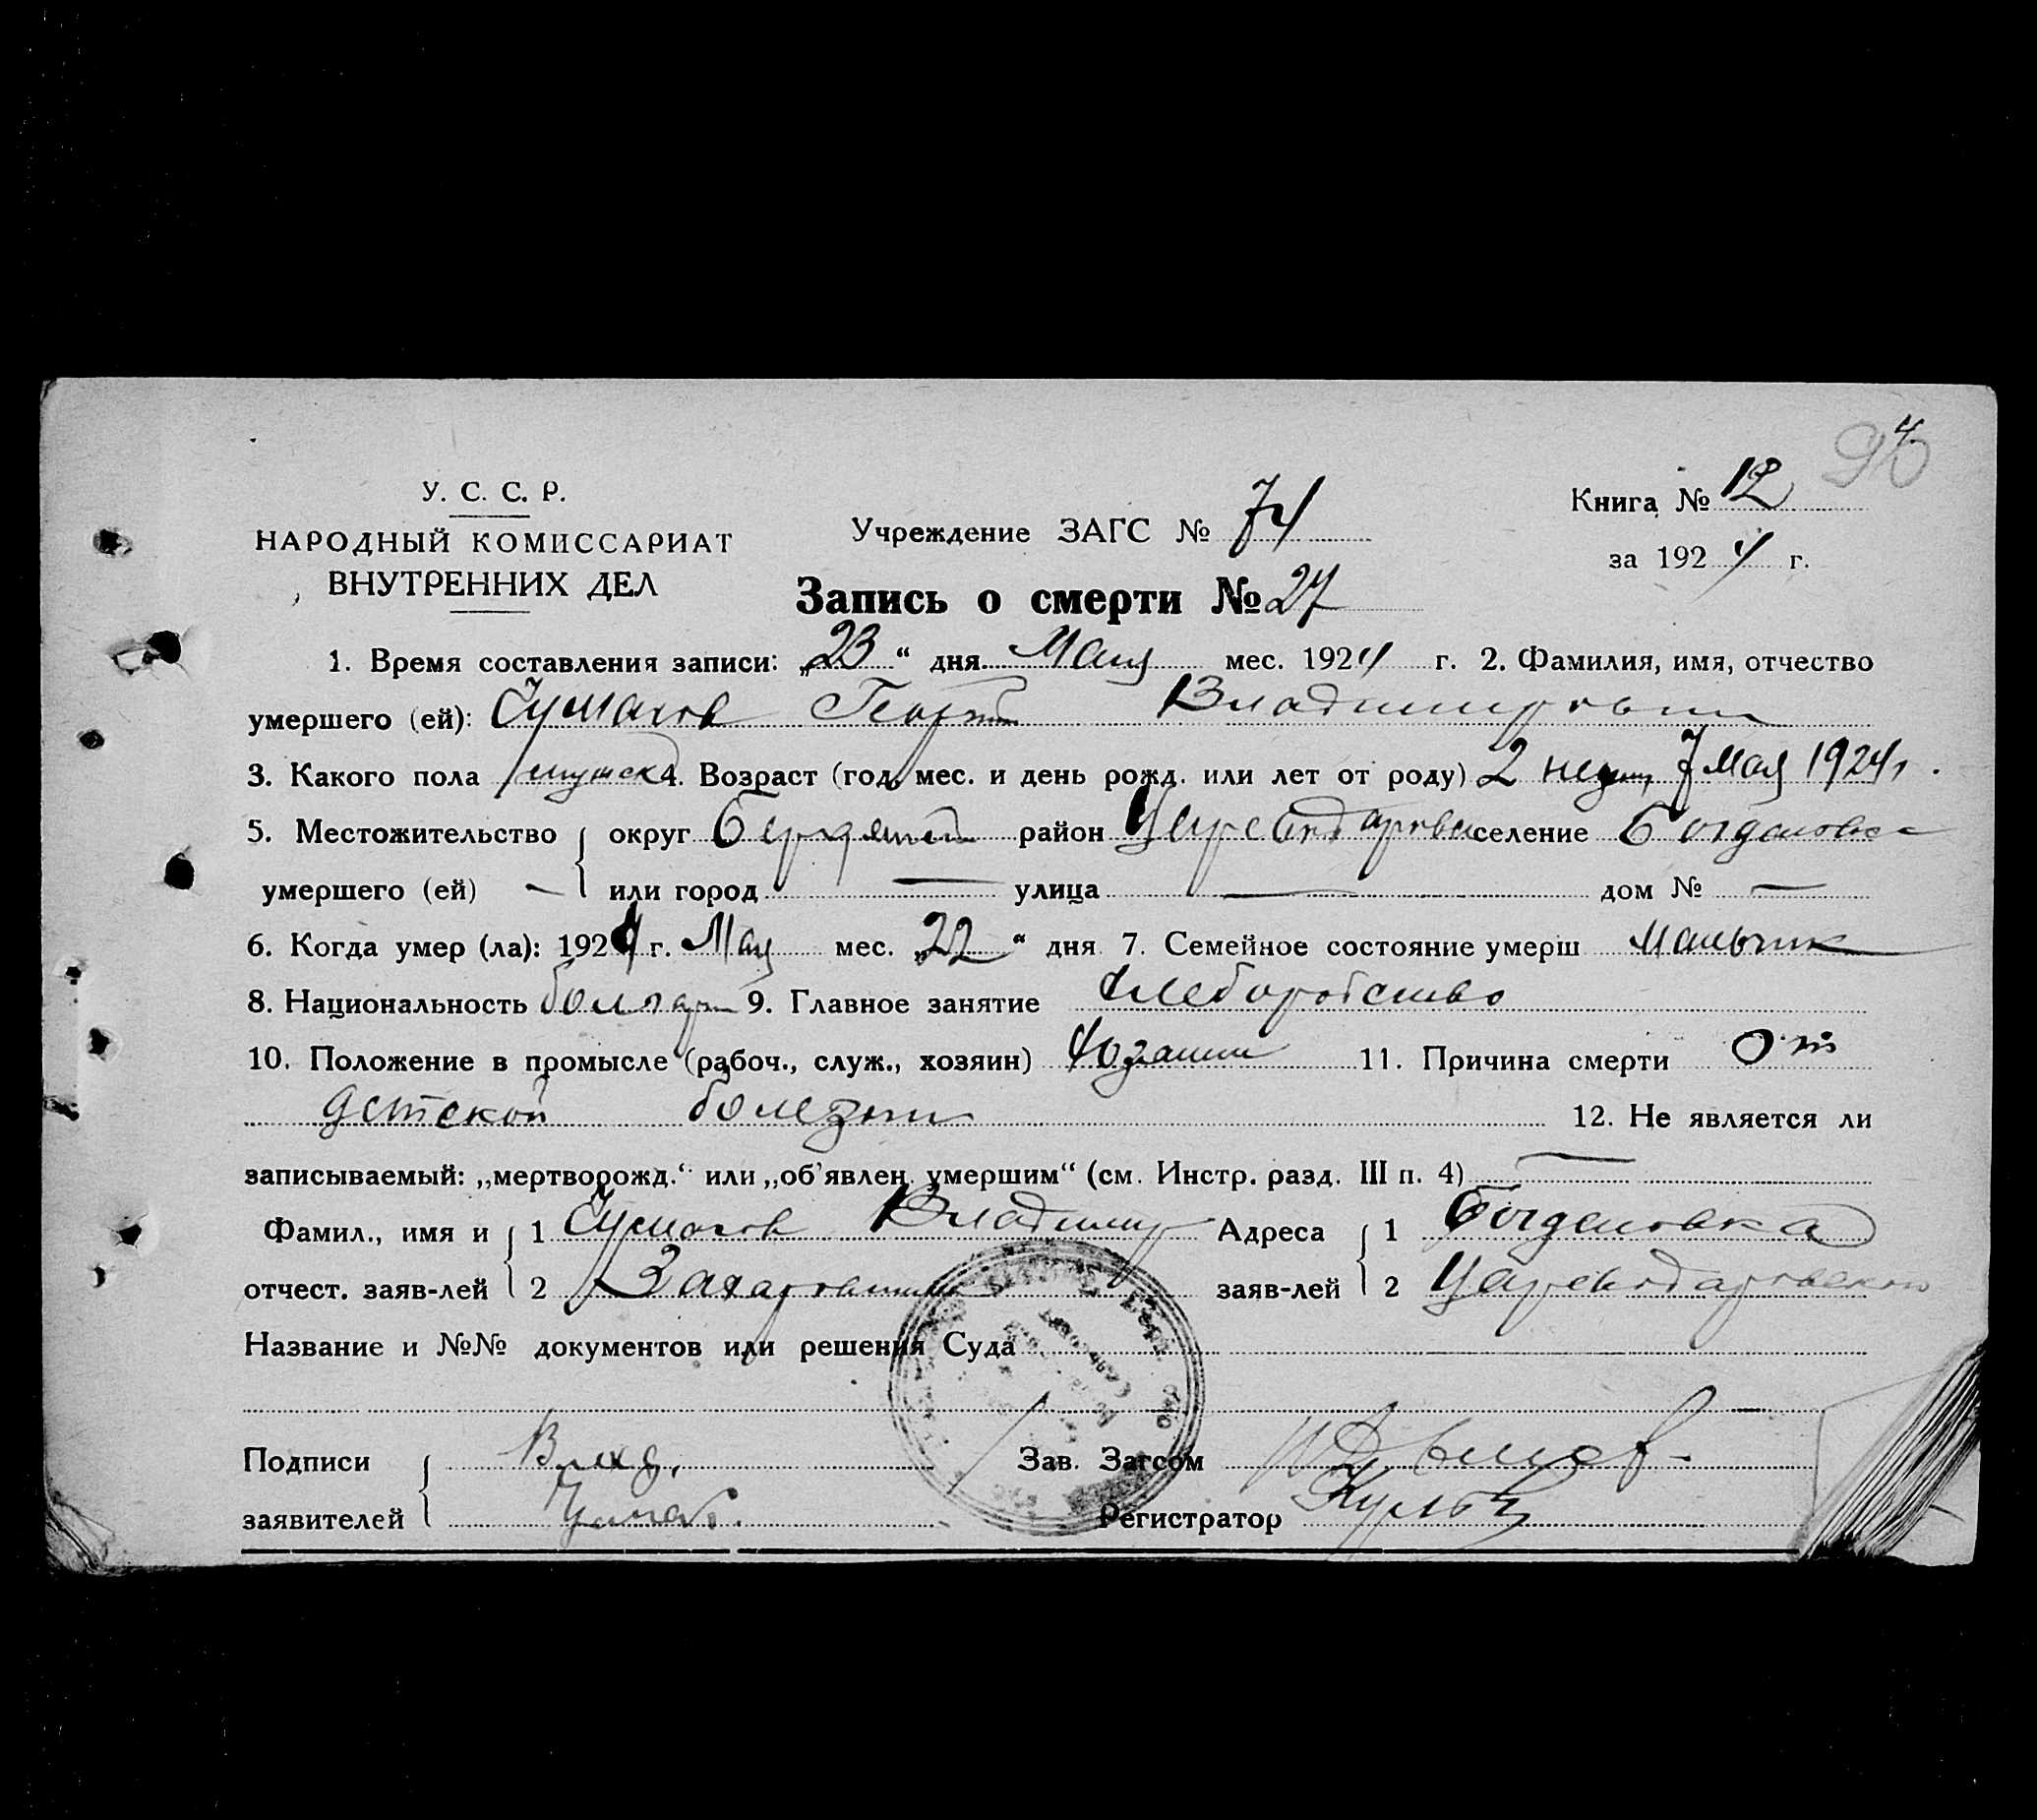 4
90
У. С. С. Р.
НАРОДНЫЙ КОМИССАРИАТ
ВНУТРЕННИХ ДЕЛ
Учреждение ЗАГС № 74
Книга № 12
за 1924 г.
Запись о смерти № 27
1. Время составления записи: „23“ дня Мая мес. 1924 г. 2. Фамилия, имя, отчество
умершего (ей): Чумаков Георгий Владимирович
3. Какого пола мужск 4. Возраст (год, мес. и день рожд. или лет от роду) 2 недели, 7 Мая 1924 г.
5. Местожительство округ Бердянский район Цареводаровск селение Богдановка
умершего (ей) — или город — улица — дом № —
6. Когда умер (ла): 1924 г. Мая мес. „22“ дня 7. Семейное состояние умерш мальчик
8. Национальность болгарин 9. Главное занятие хлеборобство
10. Положение в промысле (рабоч., служ., хозяин) хозяин 11. Причина смерти От
детской болезни 12. Не является ли
записываемый: „мертворожд.“ или „об'явлен. умершим“ (см. Инстр. разд. III п. 4) —
Фамил., имя и 1 Чумаков Владимир Адреса 1 Богдановка
отчест. заяв-лей 2 Захарович заяв-лей 2 Цареводаровского
Название и №№ документов или решения Суда
Подписи Влад. Зав. Загсом
заявителей Регистратор